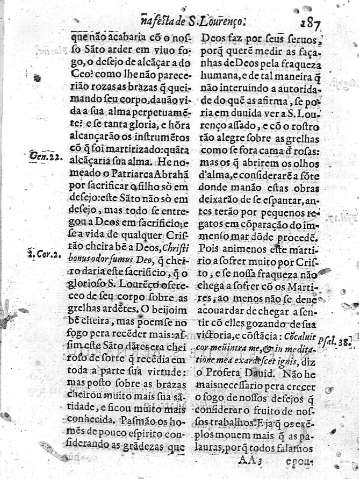 na festa de S. Lourenço. 187
que não acabaria cõ o nos-
so Sãto arder em viuo fo-
go, o desejo de alcãçar a do
Ceo? como lhe não parece-
rião rozas as brazas q̃ quei-
mando seu corpo, dauão vi-
da a sua alma perpetuamẽ-
te? e se tanta gloria, e hõra
alcançarão os instrumẽtos
cõ q̃ foi martirizado: quãta
alcãçaria sua alma. He no-
Gen. 22.
meado o Patriarca Abrahã
por sacrificar o filho sò em
desejo: este Sãto não sò em
desejo, mas todo se entre-
gou a Deos em sacrificio: e
se a vida de qualquer Cris-
tão cheira bẽ a Deos, Christi
2. Cor. 2.
bonus odor sumus Deo, q̃ chei-
ro daria este sacrificio, q̃ o
glorioso S. Lourẽço ofere-
ceo de seu corpo sobre as
grelhas ardẽtes. O beijoim
bẽ cheira, mas poem se no
fogo pera recẽder mais: as-
sim este Sãto dãtes era chei
roso de sorte q̃ recẽdia em
toda a parte sua virtude:
mas posto sobre as brazas
cheirou muito mais sua sã-
tidade, e ficou muito mais
conhecida. Pasmão os ho-
mẽs de pouco espirito con-
siderando as grãdezas que
Deos faz por seus seruos,
porq̃ querẽ medir as faça-
nhas de Deos pela fraqueza
humana, e de tal maneira q̃
não interuindo a autorida-
de do quẽ as afirma, se po-
ria em duuida ver a S. Lou-
rẽço assado, e cõ o rostro
tão alegre sobre as grelhas
como se fora cama d rosas:
mas os q̃ abrirem os olhos
d'alma, e considerarẽ a fõte
donde manão estas obras
deixarão de se espantar, an-
tes terão por pequenos re-
gatos em cõparação do im-
menso mar dõde procedẽ.
Pois animenos este marti-
rio a sofrer muito por Cris-
to, e se nossa fraqueza não
chega a sofrer cõ os Marti-
res, ao menos não se deue
acouardar de chegar a sen-
tir cõ elles gozando de sua
victoria, e cõstãcia: Cõcaluit
Psal. 38.
cor meum intra me, & in medita
tione mea exardescet ignis, diz
o Profeta Dauid. Não he
mais necessario pera crecer
o fogo de nossos desejos q̃
considerar o fruito de nos-
sos trabalhos. E ja q̃ os exẽ-
plos mouem mais q̃ as pa-
lauras, porq̃ todos falamos
AA 3 epou-